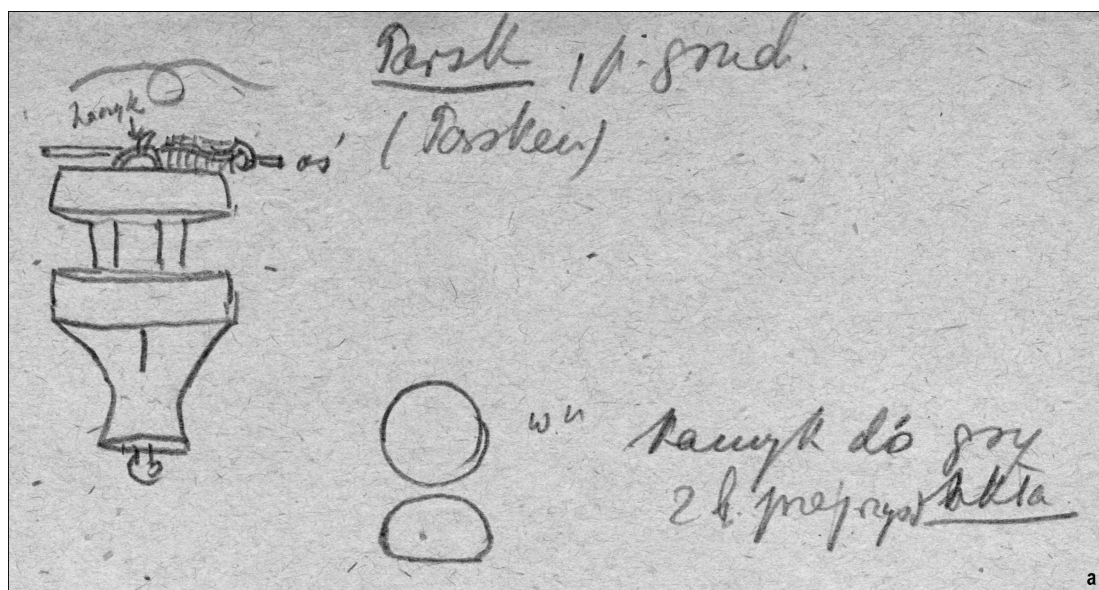 Parsk, p. grudz.
(Parsken)
zamyk
oś
w. n
kamyk do gry
z b. przejrzyst szkła
a